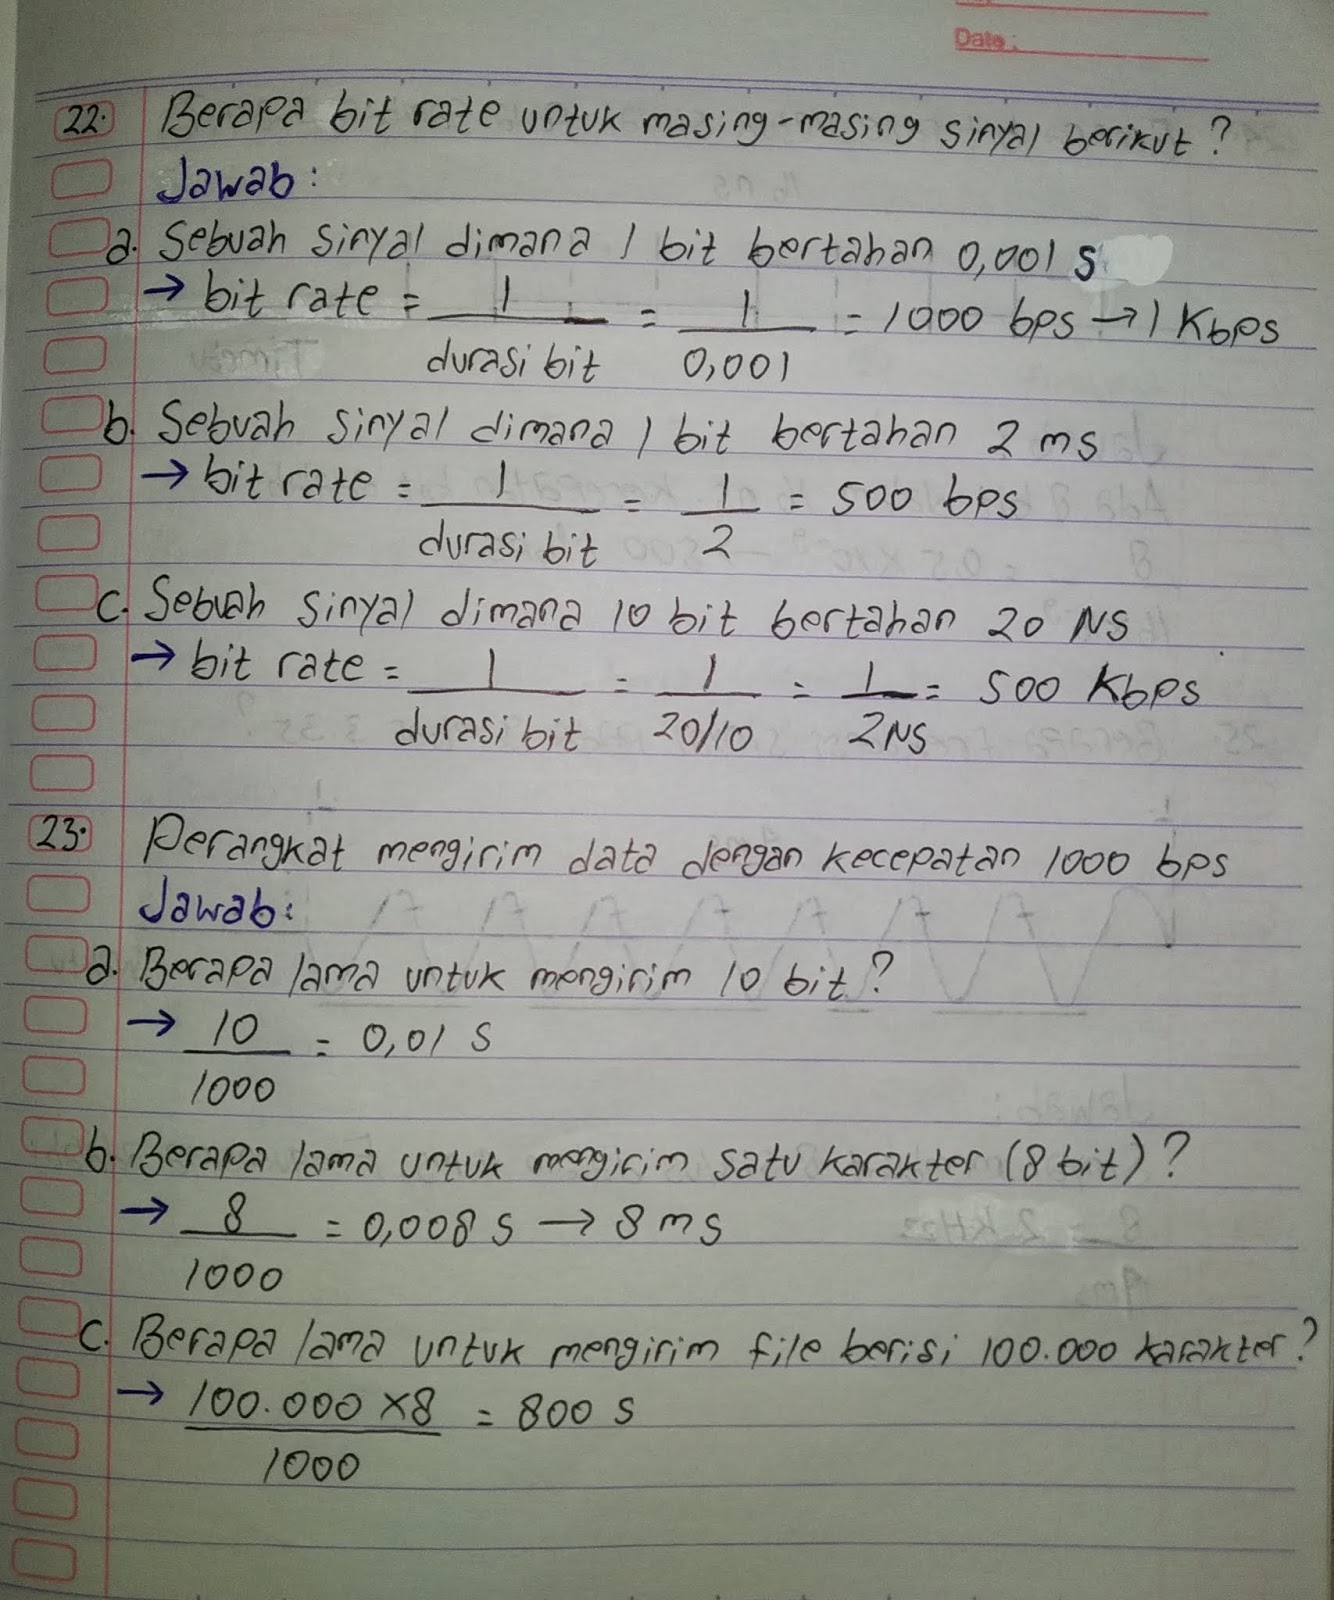 Date:
22. Berapa bit rate untuk masing-masing sinyal berikut?
Jawab:
a. Sebuah sinyal dimana 1 bit bertahan 0,001 s
→ bit rate = 1 / durasi bit = 1 / 0,001 = 1000 bps → 1 Kbps
b. Sebuah sinyal dimana 1 bit bertahan 2 ms
→ bit rate = 1 / durasi bit = 1 / 2 = 500 bps
c. Sebuah sinyal dimana 10 bit bertahan 20 NS
→ bit rate = 1 / durasi bit = 1 / 20/10 = 1 / 2NS = 500 Kbps
23. Perangkat mengirim data dengan kecepatan 1000 bps
Jawab:
a. Berapa lama untuk mengirim 10 bit?
→ 10 / 1000 = 0,01 s
b. Berapa lama untuk mengirim satu karakter (8 bit)?
→ 8 / 1000 = 0,008 s → 8 ms
c. Berapa lama untuk mengirim file berisi 100.000 karakter?
→ 100.000 x8 / 1000 = 800 s